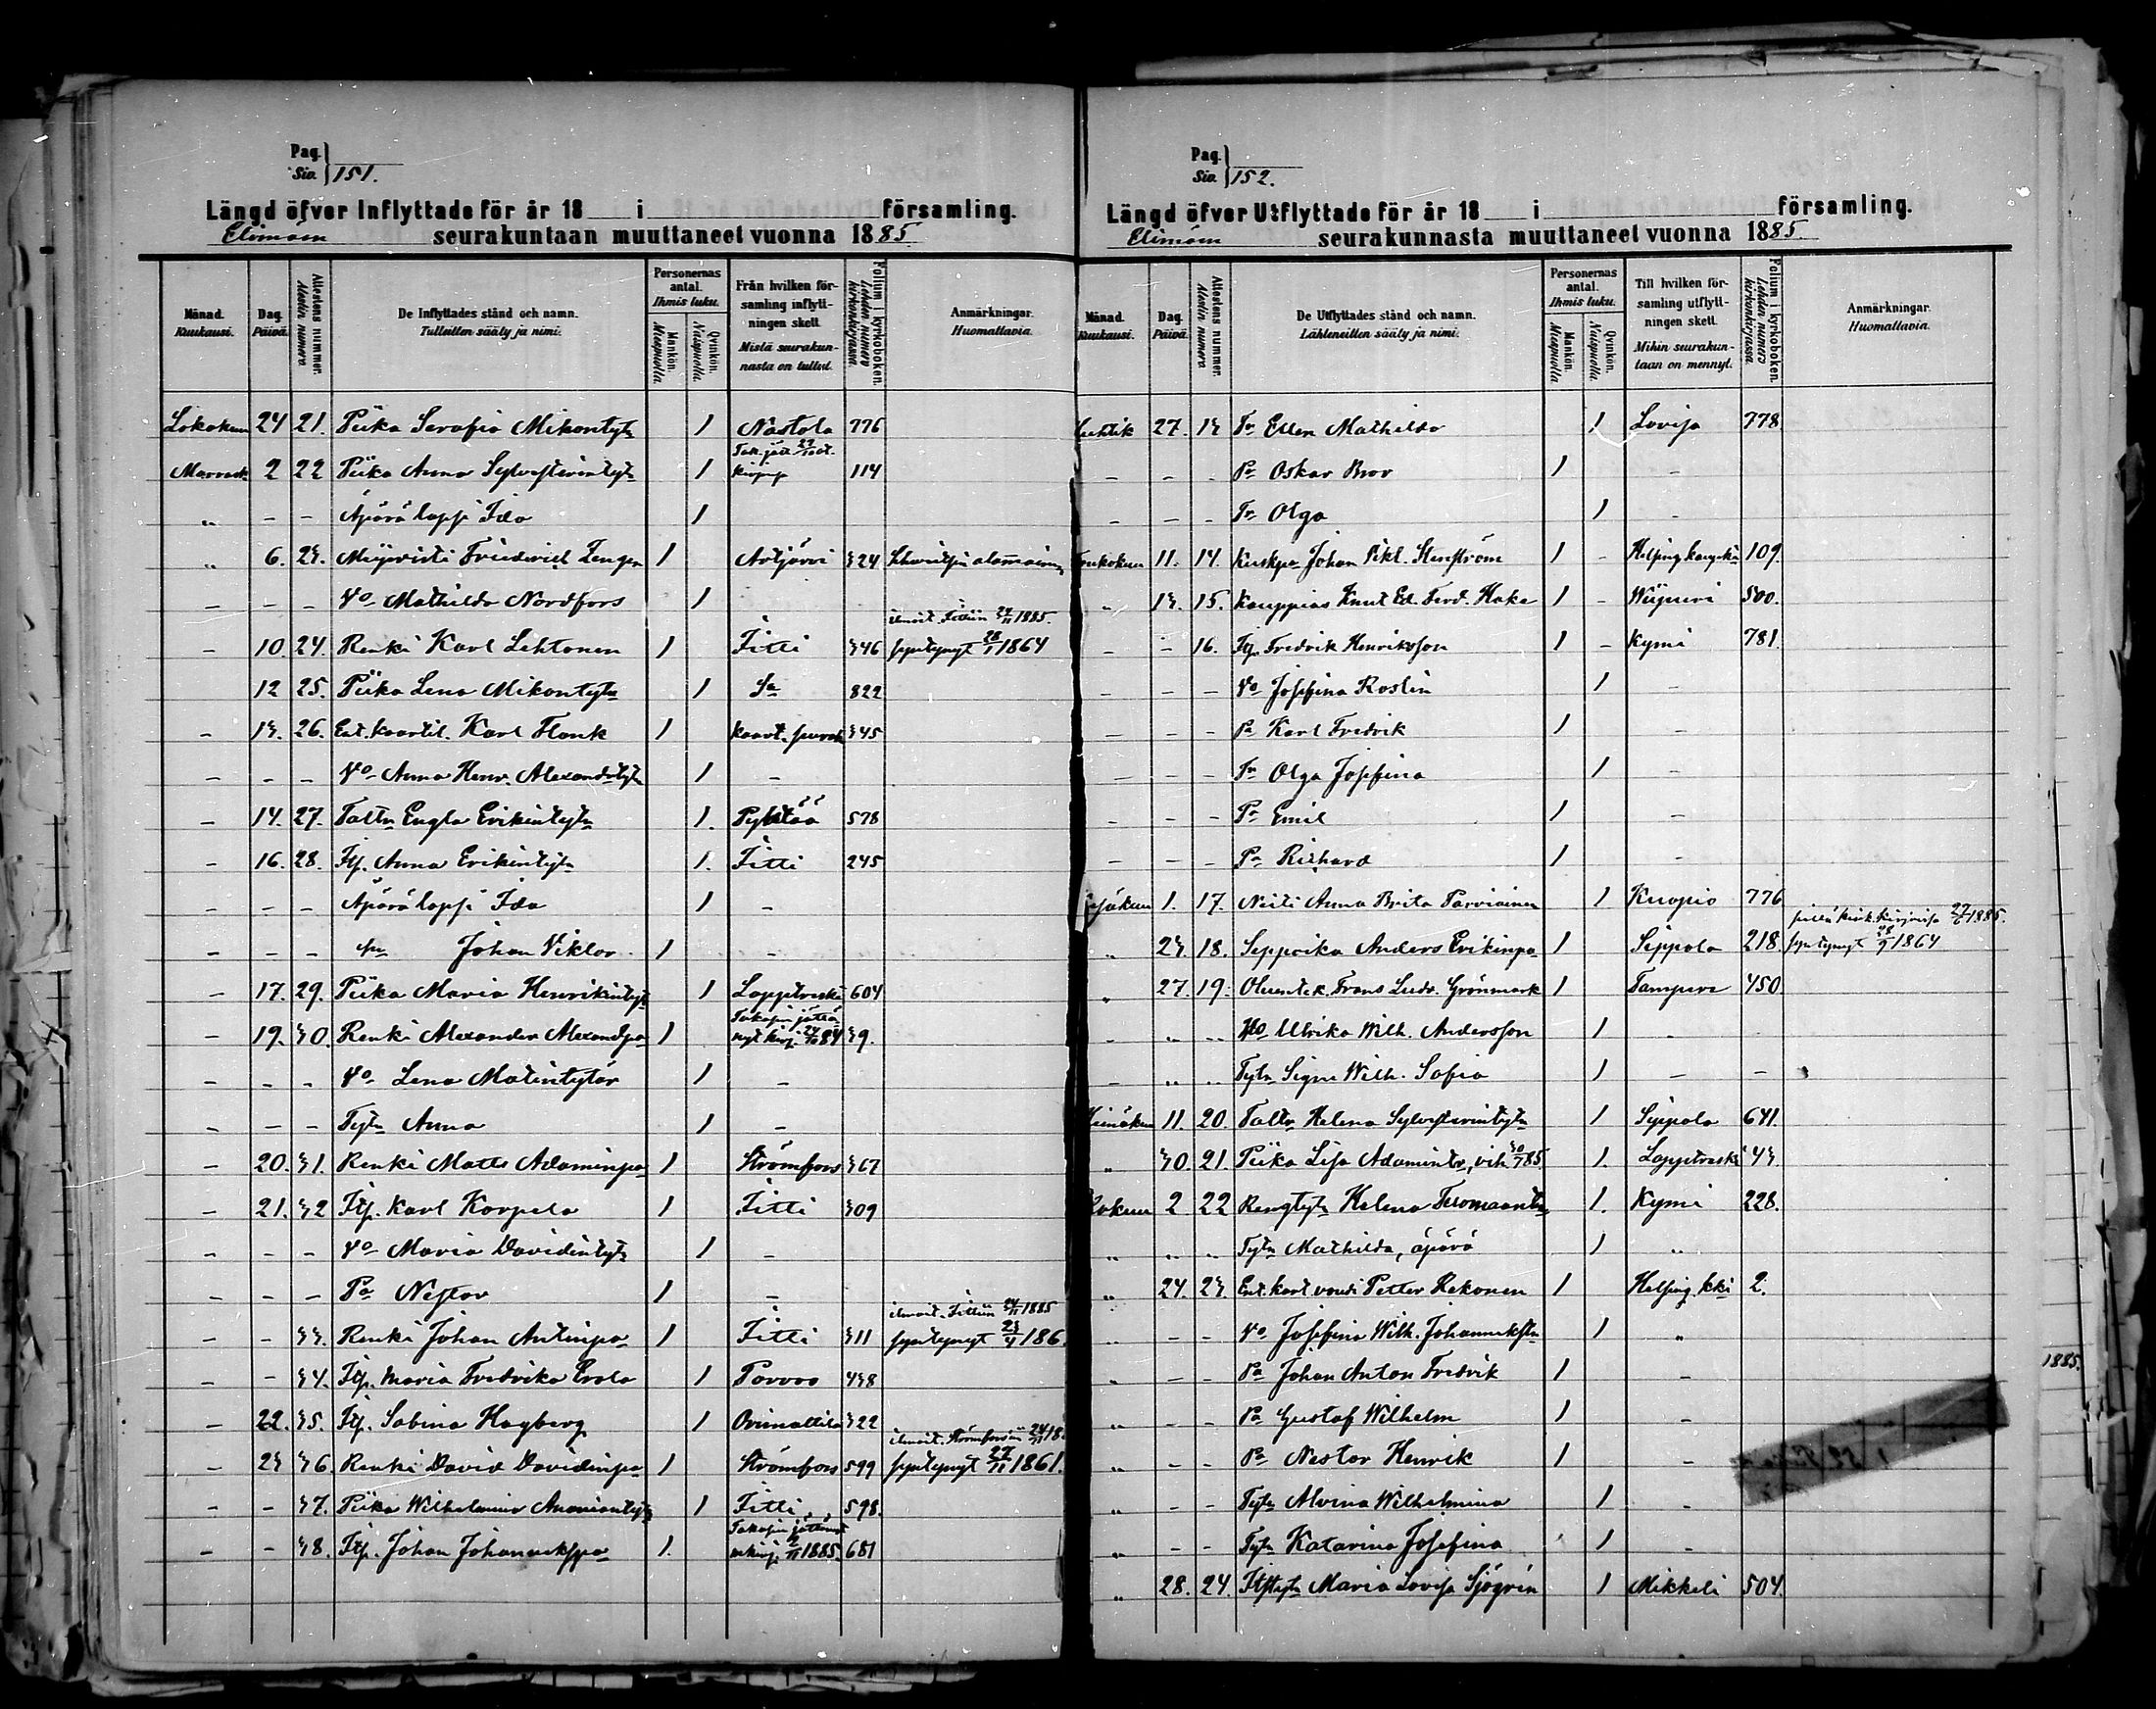 Pag.
Siv. 151.
Längd öfver Inflyttade för år 18 i församling.
Elimäen seurakuntaan muuttaneet vuonna 1885
Månad. Kuukausi. Dag. Päivä. Attestens nummer. Alestin numero De Inflyttades stånd och namn. Tulleitten sääty ja nimi. Personernas antal. Ihmis luku. Mankön. Miespuolia. Qvinkön. Naispuolia. Från hvilken församling inflyttningen skett. Mistä seurakunnasta on tullut. Folium i kyrkoboken. Lehden numero kirkonkirjassa. Anmärkningar. Huomattavia.
Lokakuu 24 21. Piika Serafia Mikontytr 1 Nastola 776
Marrask. 2 22 Piika Anna Sylvesterintytr 1 114
" – – Äpärä lapsi Ida 1
" 6. 23. Friederich 1 Artjärvi 324
– – – Vo Mathilda Nordfors 1
– 10. 24. Renki Karl Lehtonen 1 Iitti 346 ilmoit. Iittiin 1885. syntynyt 1864
12 25. Piika Lena Mikontytr 1 Sa 822
– 13. 26. Ent. kaartil. Karl Flonk 1 kaart. seurak 345
– – – Vo Anna Henr. Alexandstytr 1 –
– 14. 27. Taltr Engla Erikintytr 1. Pyhtää 578
– 16. 28. Itp. Anna Erikintytr 1. Iitti 245
– – – Äpärä lapsi Ida 1 –
– – – Johan Viktor 1 –
– 17. 29. Piika Maria Henrikintytr 1 Lapptreski 604
– 19. 30. Renki Alexander Alexandpa 1 Takasin jättänyt kirj. 84 39.
– – – Vo Lena Matintytär 1 –
– – – Tytr Anna 1 –
– 20. 31. Renki Matts Adaminpa 1 Strömfors 367
– 21. 32 Itp. Karl Korpela 1 Iitti 309
– – – Vo Maria Davidintytr 1 –
– – – Pa Nestor 1 –
– – 33. Renki Johan Antinpa 1 Iitti 311 ilmoit. Iittiin 1885 syntynyt 186
– – 34. Itp. Maria Fredrika Erola 1 Porvoo 438
– 22. 35. Itp. Sabina Hagberg 1 Orimattila 322
– 23 36. Renki David Davidinpa 1 Strömfors 599 ilmoit. Strömforsiin 18 syntynyt 1861.
– – 37. Piika Wilhelmina Ananiantytr 1 Iitti 598.
– – 38. Itp. Johan Johannekspa 1. Takasin 1885. 681
Pag.
Siv. 152.
Längd öfver Utflyttade för år 18 i församling.
Elimäen seurakunnasta muuttaneet vuonna 1885.
Månad. Kuukausi. Dag. Päivä. Attestens nummer. Alestin numero De Utflyttades stånd och namn. Lähteneitten sääty ja nimi. Personernas antal. Ihmis luku. Mankön. Miespuolia Qvinkön. Naispuolia. Till hvilken församling utflyttningen skett. Mihin seurakuntaan on mennyt. Folium i kyrkoboken. Lehden numero kirkonkirjassa. Anmärkningar. Huomattavia.
huhtik 27. 13 Tr Ellen Mathilda 1 Lovisa 778
– – – Pa Oskar Bror 1 –
– – – Tr Olga 1 –
Toukokuu 11. 14. Johan Stenström 1 – Helsing kaupki 109.
" 13. 15. Kauppias Knut Ed. Ferd. Hake 1 – Wiipuri 500.
– – 16. Itp. Fredrik Henriksson 1 – Kymi 781.
– – – Vo Josefina Roslin 1 –
– – – Pa Karl Fredrik 1 –
– – – Tr Olga Josefina 1 –
– – – Pa Emil 1 –
– – – Pa Richard 1 –
Kesäkuu 1. 17. Neiti Anna Brita Parviainen 1 Kuopio 776
" 23. 18. Sepprika Anders Erikinpa 1 Sippola 218. 1885. syntynyt 1864
" 27. 19. Frans Ludv. Grönmark 1 Tampere 450
– " " Vo Ulrika Wilh. Andersson 1 –
– " " Tytr Signe Wilh. Sofia 1 – –
Heinäkuu 11. 20. Taltr Helena Sylvesterintytr 1 Sippola 641.
" 30. 21. Piika Lisa Adamintr, vih. 85 1. Lapptreski 43.
Elokuu 2 22 Rengtytr Helena 1. Kymi 228.
" " " Tytr Mathilda, äpärä 1 "
" 24. 23. Ent. kart. vouti Petter Rekonen 1 Helsing. kki 2.
" – – Vo Josefina Wilh. Johannekstr 1 "
" – – Pa Johan Anton Fredrik 1 –
" – – Pa Gustaf Wilhelm 1 –
" – – Pa Nestor Henrik 1 –
" – – Tytr Alvina Wilhelmina 1 –
" – – Tytr Katarina Josefina 1 –
" 28. 24. Maria Lovisa Sjögrén 1 Mikkeli 504.
1885.